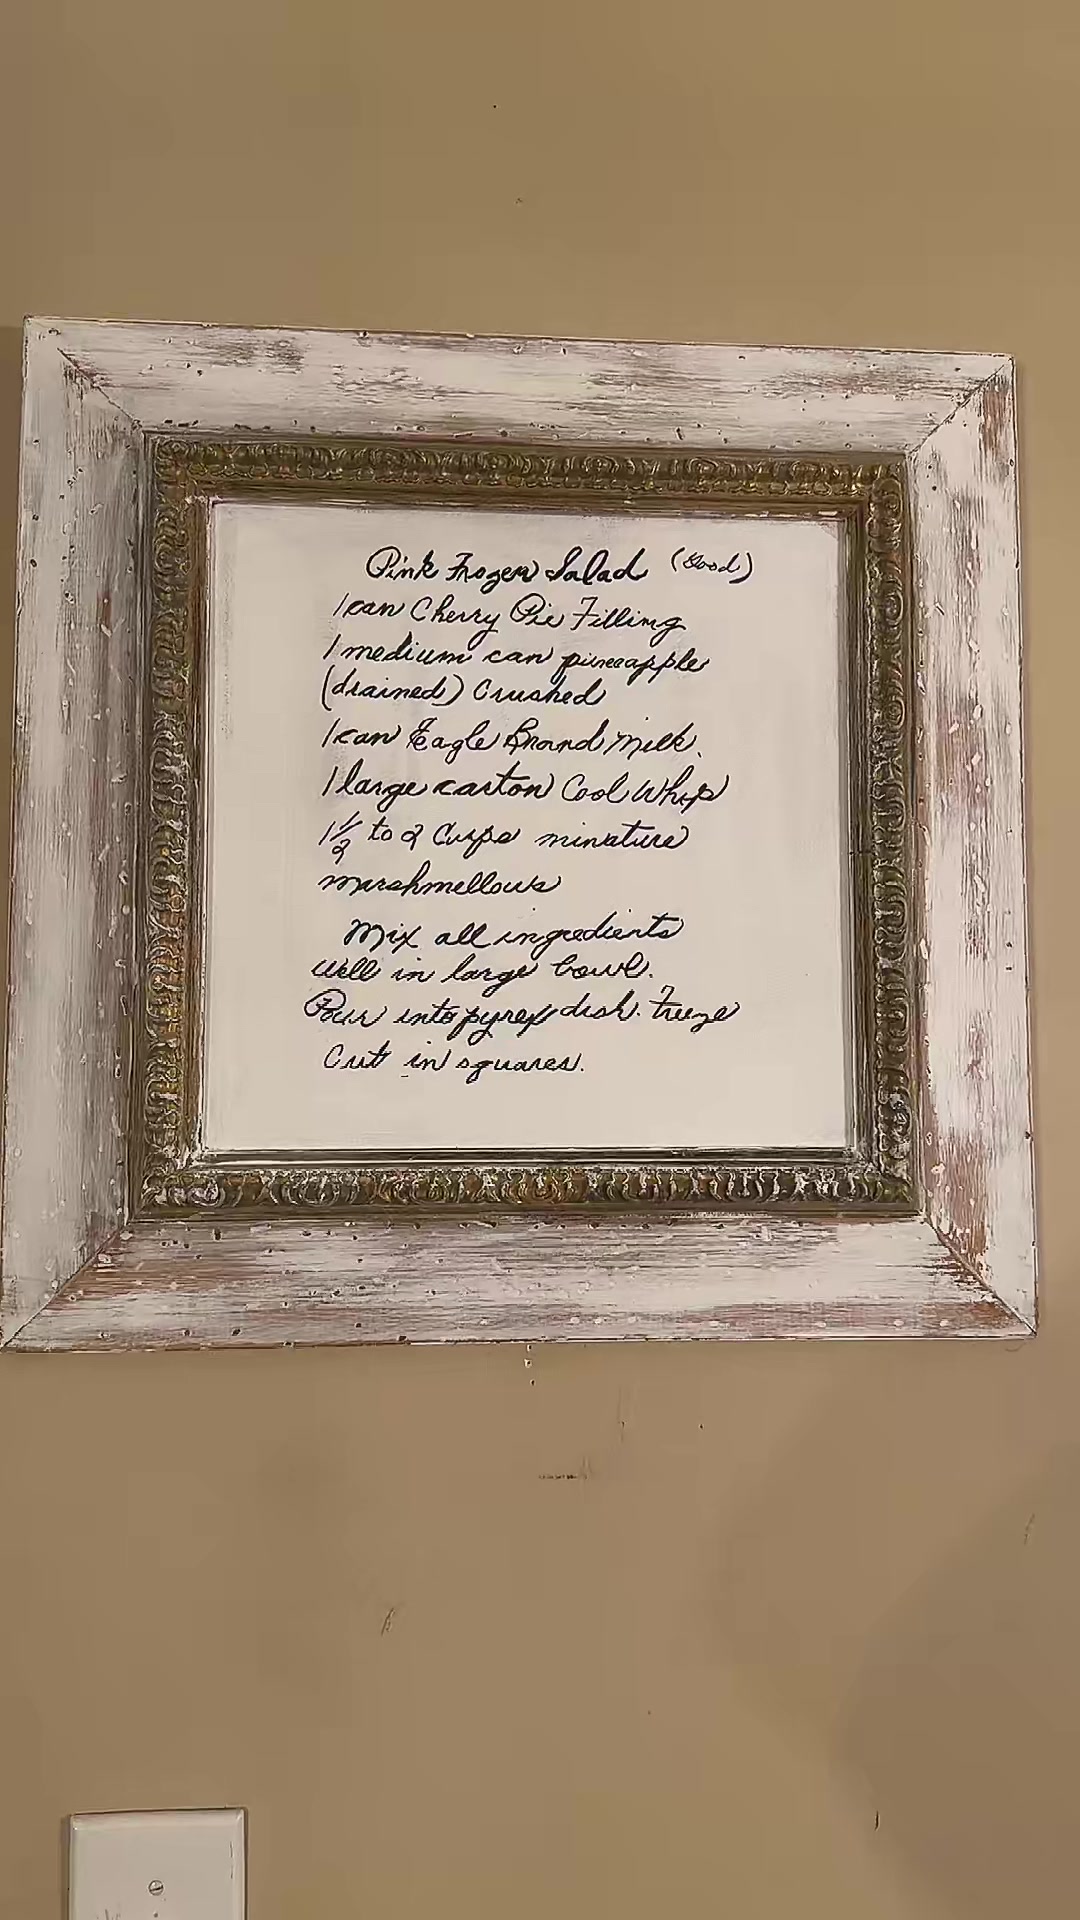 Pink Frozen Salad (Good)
1 can Cherry Pie Filling
1 medium can pineapple
(drained) Crushed
1 can Eagle Brand Milk.
1 large carton Cool Whip
1 1/2 to 2 Cups miniature
marshmellows
Mix all ingredients
well in large bowl.
Pour into pyrex dish. Freeze
Cut in squares.